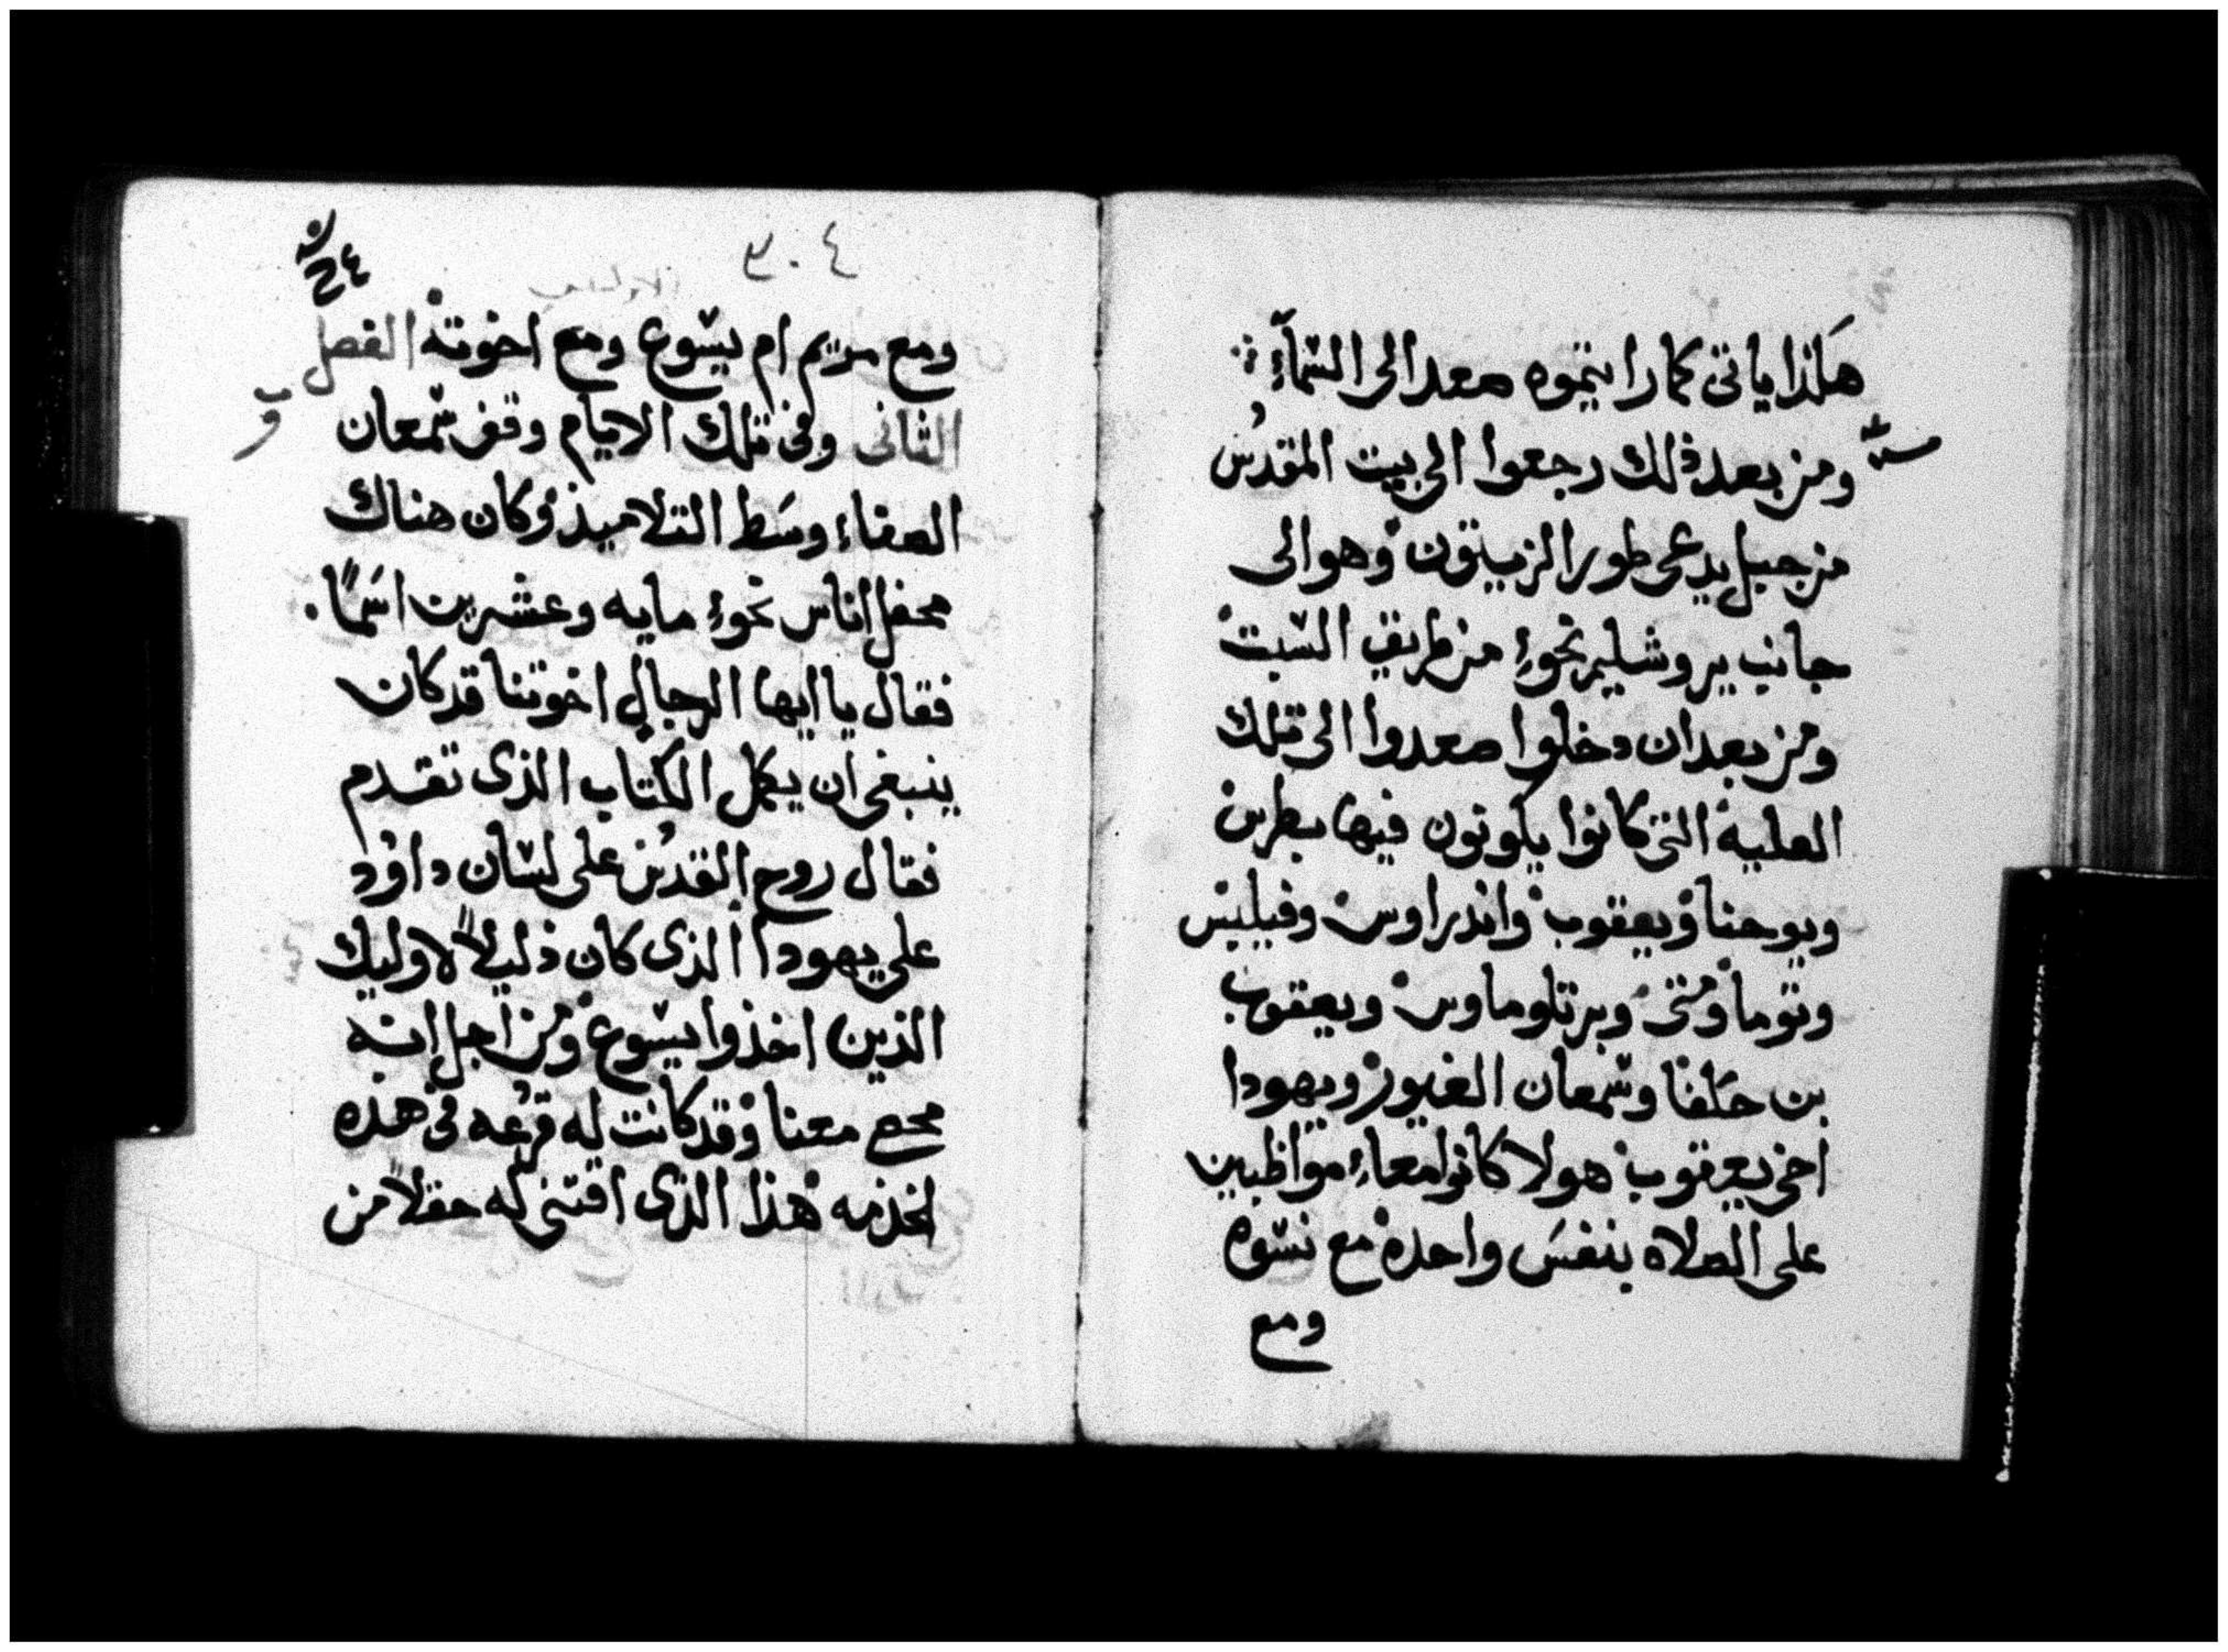 هكذا ياتى كما رايتموه صعد الى السّمآءِ
ومن بعد ذلك رجعوا الى بيت المقدُس
من جبل يدعى طور الزيتون وهو الى
جانب يروشليم نحوءِ من طريق السّبت
ومن بعد ان دخلوا صعدوا الى تلك
العلية التى كانوا يكونون فيها بطرس
ويوحنا ويعقوب واندراوس وفيلبس
وتوما ومتى وبرتلوماوس ويعقوب
بن حَلفا وسّمعان الغيور ويهودا
اخى يعقوب هولا كانوا معاءِ مواظبين
على الصلاه بنفسَ واحده مع نسّوه
ومع
٣٠٤
ومع مريم ام يسّوع ومع اخوته الفصل
الثانى وفى تلك الايام وقف سّمعان
الصفاء وسَط التلاميذ وكان هناك
محفل اناس نحوءِ مايه وعشرين اسَمًا.
فقال يا ايها الرجال اخوتنا قد كان
ينبغى ان يكمل الكتاب الذى تقدم
فقال روح القدُس على لسّان داوُد
على يهودا الذى كان دليلاً لاوليك
الذين اخذوا يسّوع ومن اجل انه
محصى معنا وقد كانت له قرُعه فى هذه
الخدمه هذا الذى اقتنى له حقلاً من